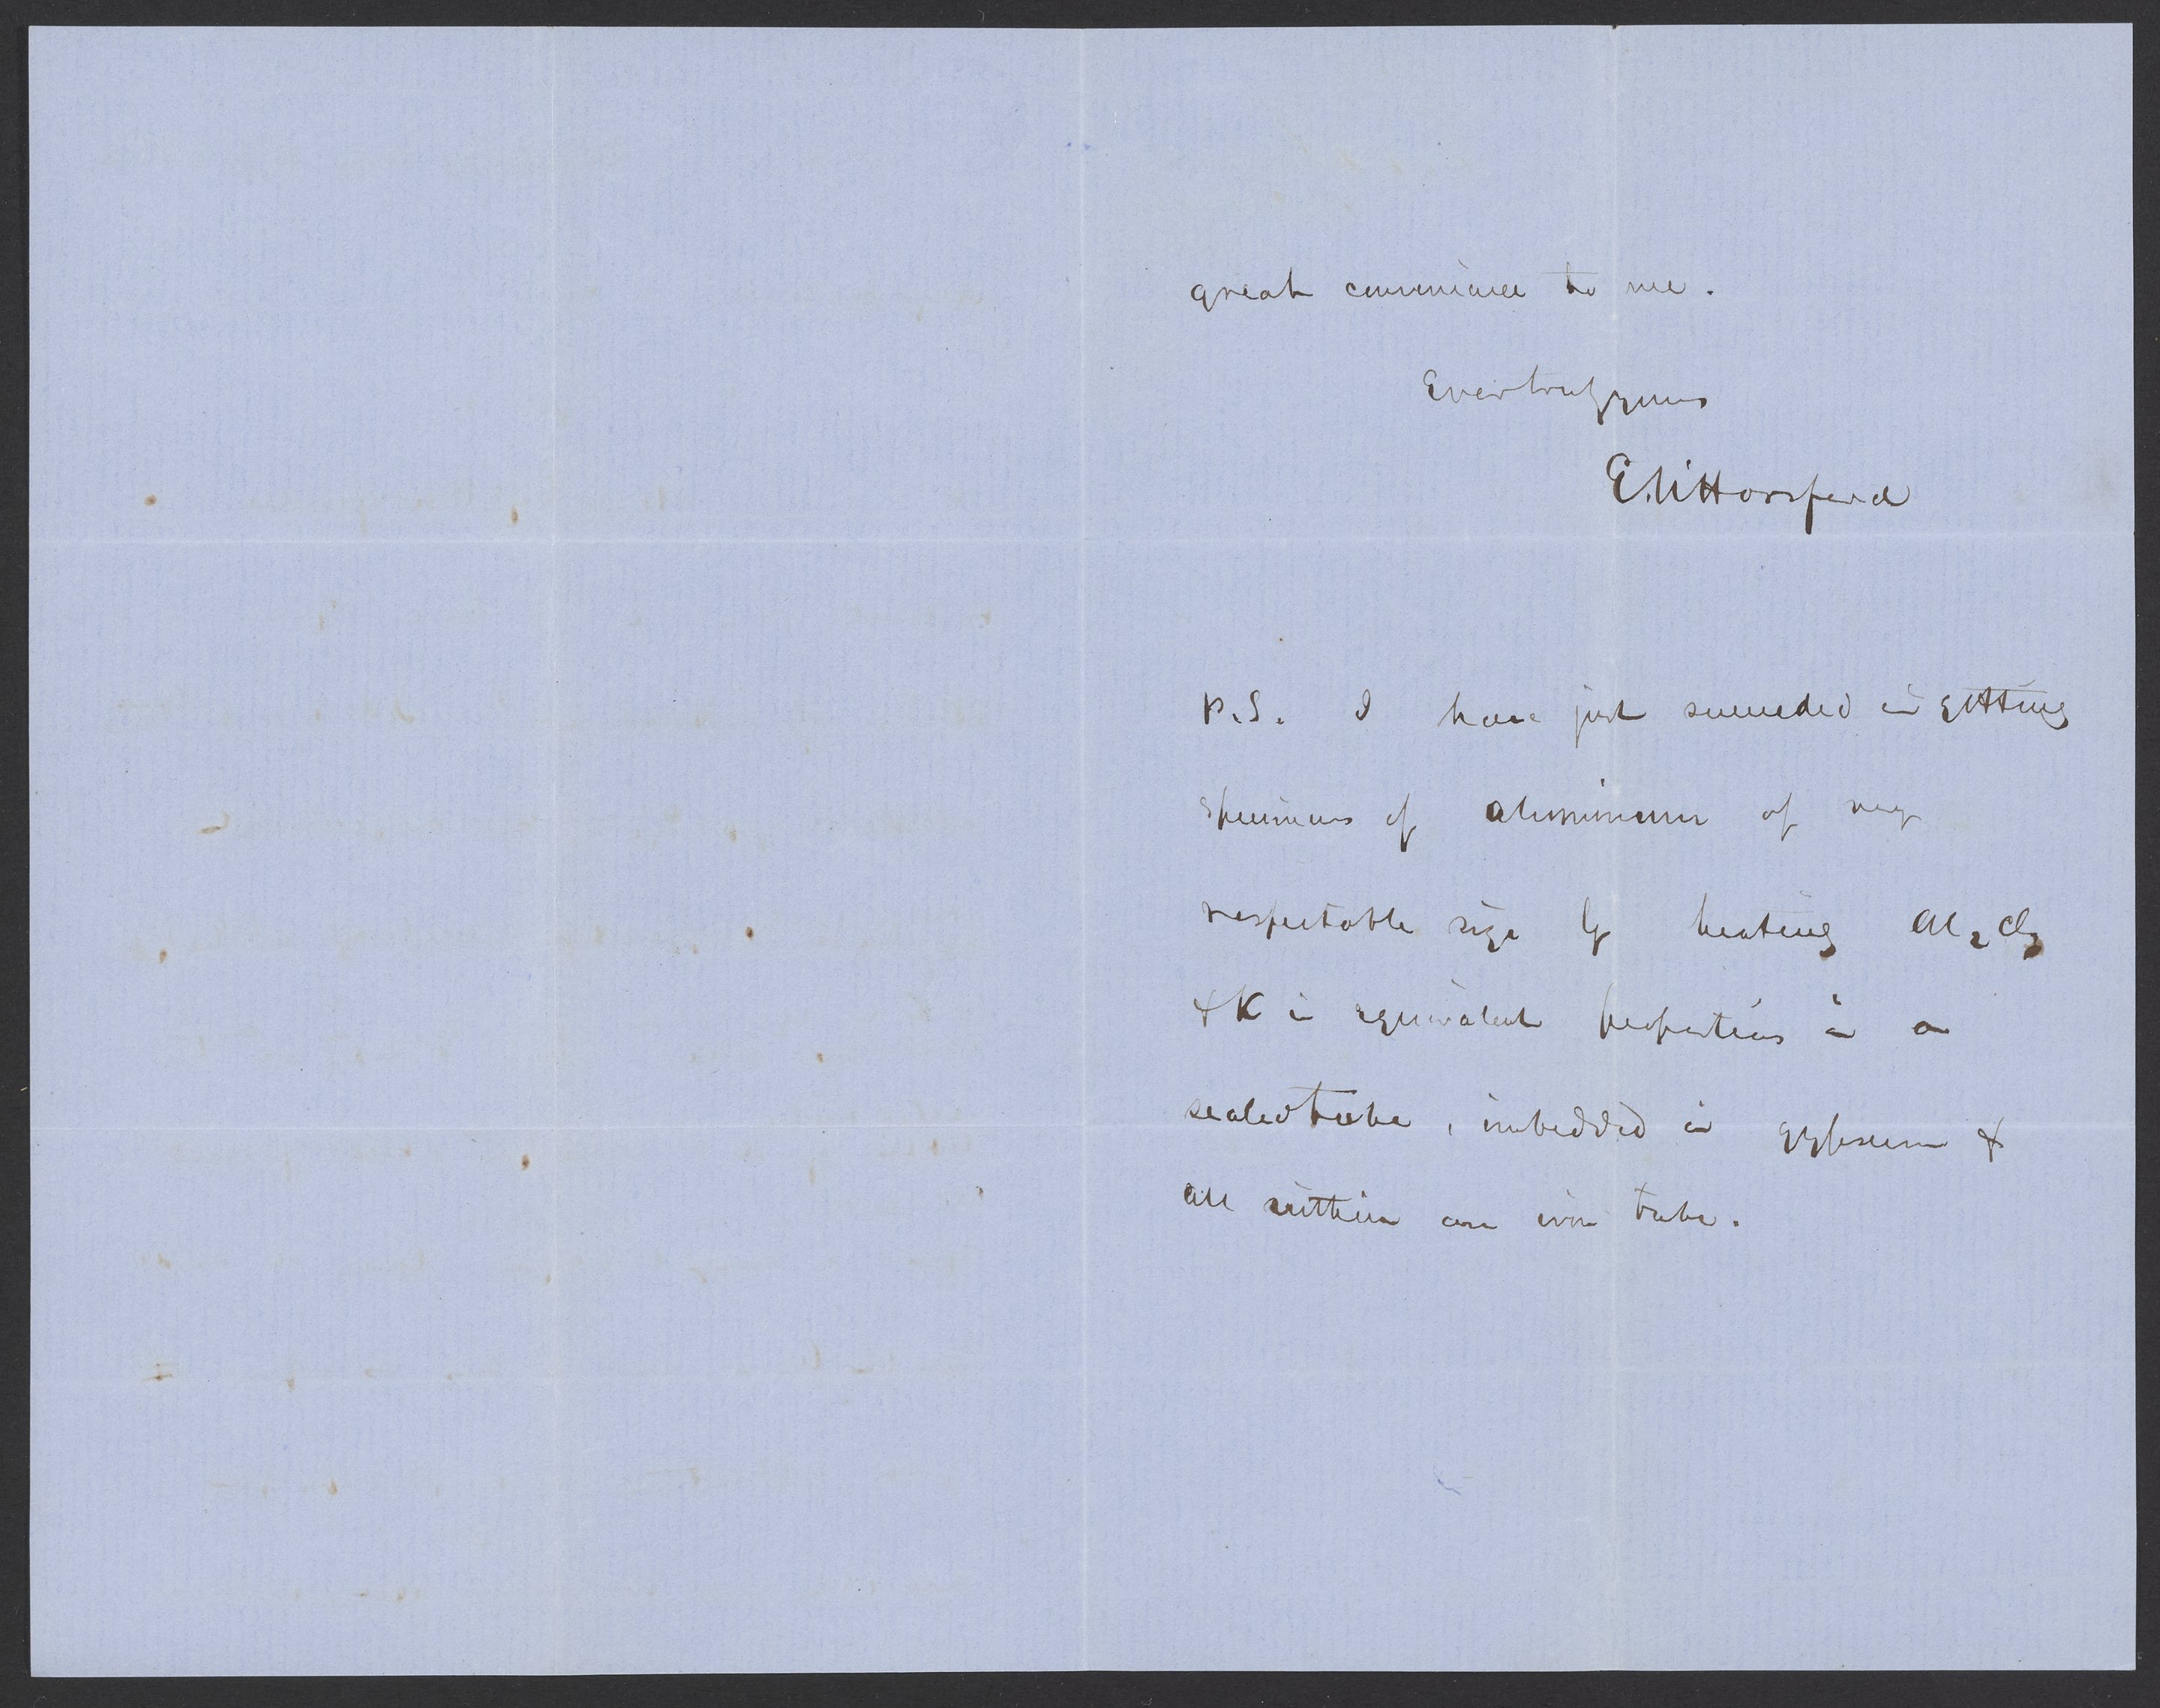 great convenience to me.
Ever truly yours
E.N. Horsford
P.S. I have just succeeded in getting
specimens of aluminum of very
respectable size by heating Al2Cl3
& K in equivalent proportions in a
sealed tube, imbedded in gypsum &
all within an iron tube.